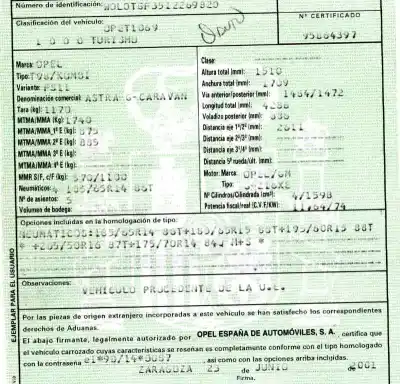 Número de identificación: W0L0TGF3512269820
Clasificación del vehículo:
Nº CERTIFICADO
OPET1069
95864397
1 0 0 0 TURISMO
Marca: OPEL
Tipo: T98/KOMBI
Variante: FS11
Denominación comercial: ASTRA-G-CARAVAN
Tara (kg): 1170
MTMA/MMA (Kg): 1740
MTMA/MMA 1º E (kg): 875
MTMA/MMA 2º E (kg): 885
MTMA/MMA 3º E (kg):
MTMA/MMA 4º E (kg):
MMR S/F, c/F (kg): 570/1100
Neumáticos: 4 185/65R14 86T
Nº de asientos: 5
Volumen de bodega:
Clase:
Altura total (mm): 1510
Anchura total (mm): 1709
Vía anterior/posterior (mm): 1484/1472
Longitud total (mm): 4288
Voladizo posterior (mm):
Distancia eje 1º/2º (mm): 2611
Distancia eje 2º/3º (mm):
Distancia eje 3º/4º (mm):
Distancia 5ª rueda/últ. (mm):
Motor: Marca: OPEL/GM
Tipo:
Nº Cilindros/Cilindrada (cm³): 4/1598
Potencia fiscal/real (C.V.F/KW): 11,64/74
Opciones incluidas en la homologación de tipo:
NEUMATICOS:185/65R14 86T+185/65R15 88T+195/60R15 88T
* +205/50R16 87T+175/70R14 84J M+S *
Observaciones:
VEHICULO PROCEDENTE DE LA U.E.
Por las piezas de origen extranjero incorporadas a este vehículo se han satisfecho los correspondientes
derechos de Aduanas.
El abajo firmante, legalmente autorizado por OPEL ESPAÑA DE AUTOMÓVILES, S. A. certifica que
el vehículo carrozado cuyas características se reseñan es completamente conforme con el tipo homologado
con la contraseña e1*98/14*0087 , así como con las opciones arriba incluidas.
ZARAGOZA 25 de JUNIO de 2001
Firma,
EJEMPLAR PARA EL USUARIO